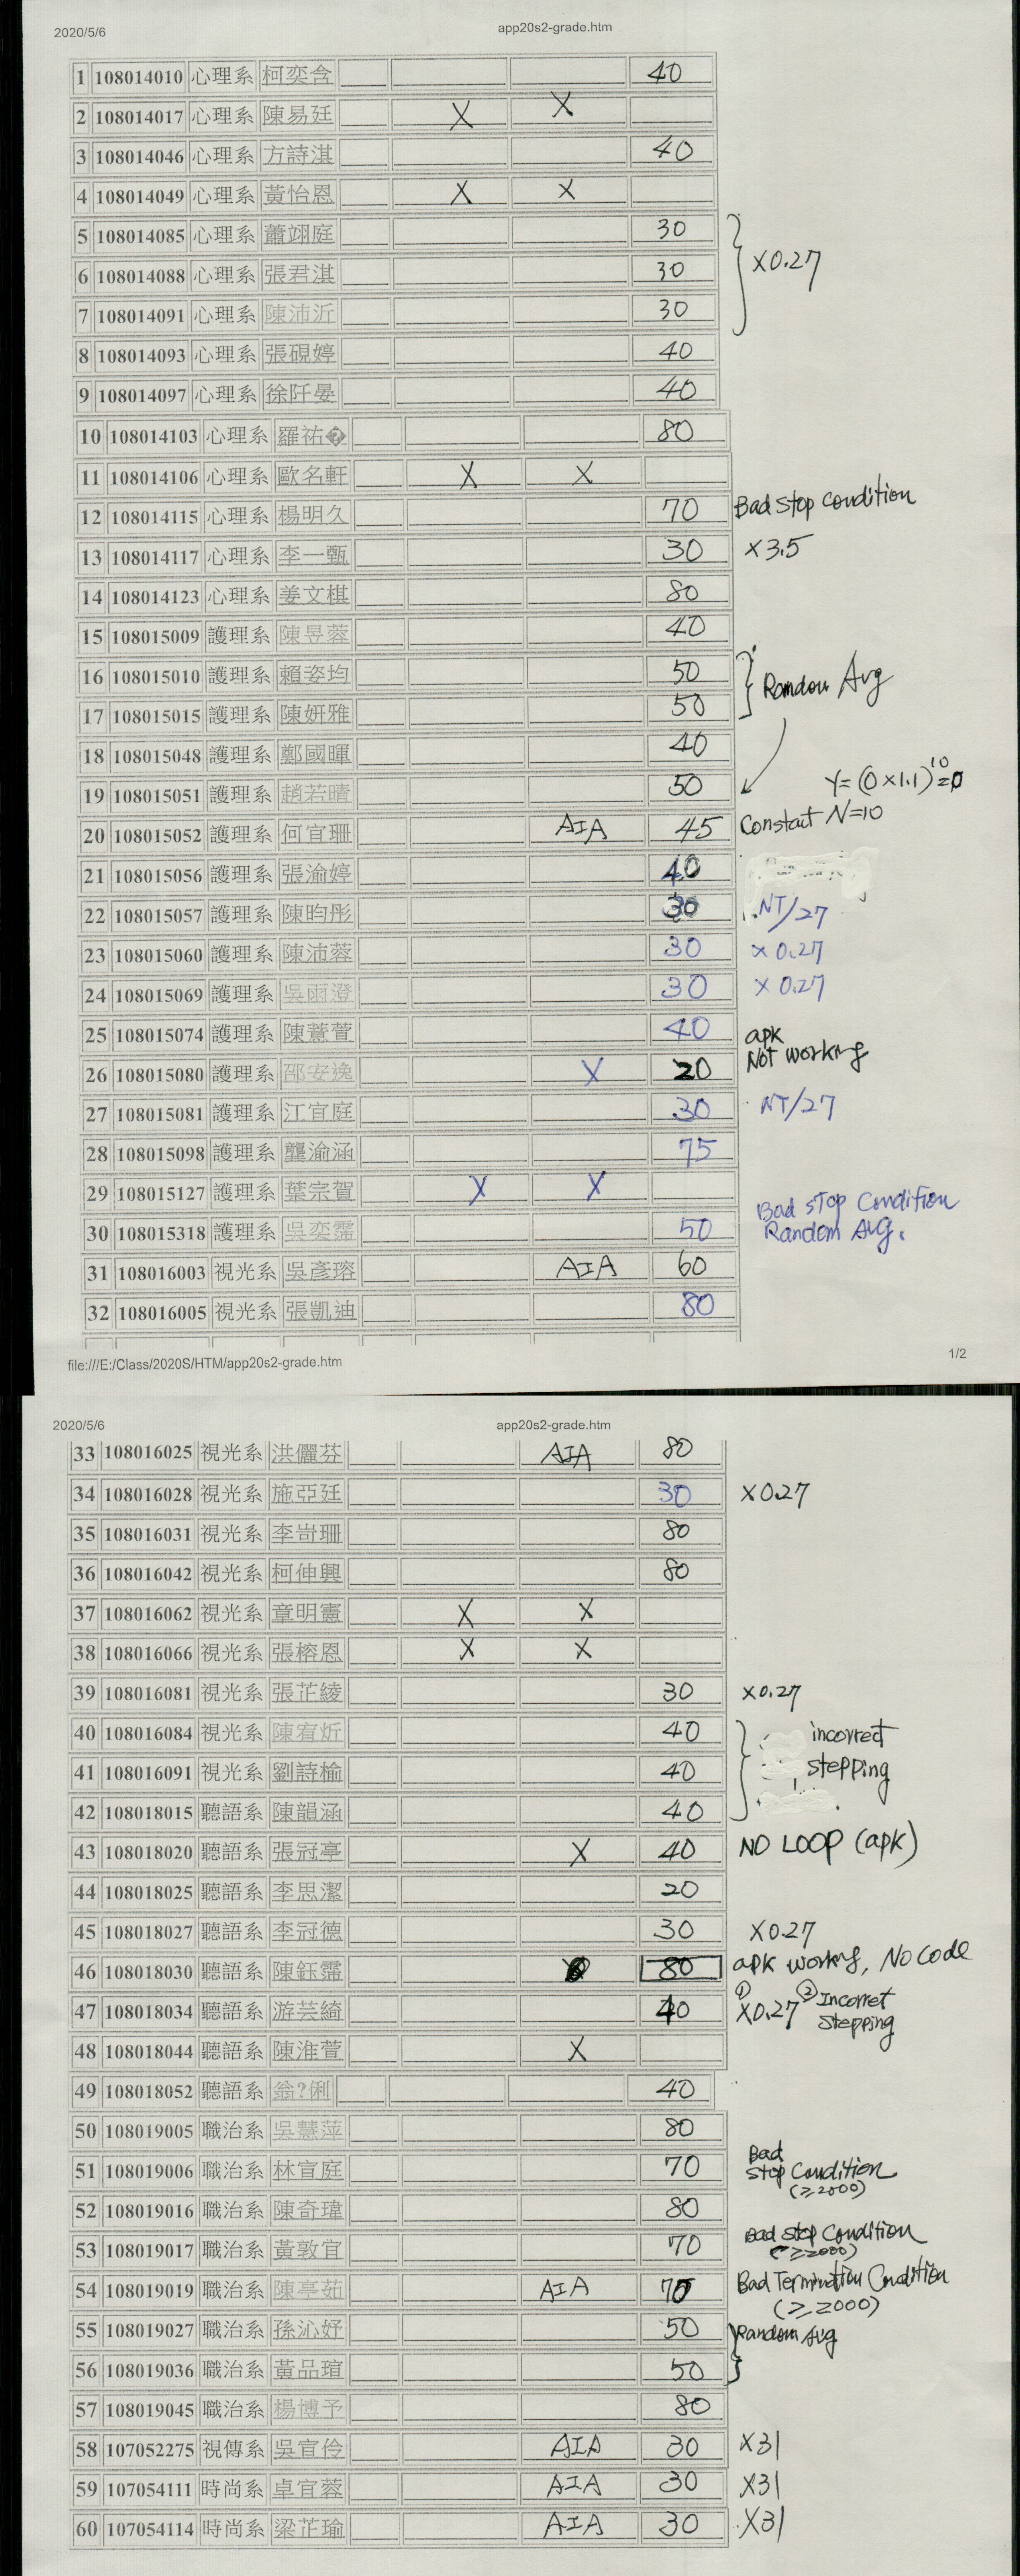 2020/5/6 app20s2-grade.htm
1 108014010 心理系 柯奕含 40
2 108014017 心理系 陳易廷 X X
3 108014046 心理系 方詩淇 40
4 108014049 心理系 黃怡恩 X X
5 108014085 心理系 蕭翊庭 30
6 108014088 心理系 張君淇 30 X0.27
7 108014091 心理系 陳沛沂 30
8 108014093 心理系 張硯婷 40
9 108014097 心理系 徐阡晏 40
10 108014103 心理系 羅祐� 80
11 108014106 心理系 歐名軒 X X
12 108014115 心理系 楊明久 70 Bad Stop Condition
13 108014117 心理系 李一甄 30 X3.5
14 108014123 心理系 姜文棋 80
15 108015009 護理系 陳昱蓉 40
16 108015010 護理系 賴姿均 50 Random Avg
17 108015015 護理系 陳妍雅 50
18 108015048 護理系 鄭國暉 40
19 108015051 護理系 趙若晴 50 Y=(0×1.1)^10=0
20 108015052 護理系 何宜珊 AIA 45 Constact N=10
21 108015056 護理系 張渝婷 40
22 108015057 護理系 陳昀彤 30 NT/27
23 108015060 護理系 陳沛蓉 30 X 0.27
24 108015069 護理系 吳雨澄 30 X 0.27
25 108015074 護理系 陳薏萱 40 apk
26 108015080 護理系 邵安逸 X 20 Not working
27 108015081 護理系 江宜庭 30 NT/27
28 108015098 護理系 龔渝涵 75
29 108015127 護理系 葉宗賀 X X
Bad STop Condition
30 108015318 護理系 吳奕霈 50 Random AVG.
31 108016003 視光系 吳彥瑢 AIA 60
32 108016005 視光系 張凱迪 80
file:///E:/Class/2020S/HTM/app20s2-grade.htm 1/2
2020/5/6 app20s2-grade.htm
33 108016025 視光系 洪儷芬 AIA 80
34 108016028 視光系 施亞廷 30 X0.27
35 108016031 視光系 李岢珊 80
36 108016042 視光系 柯伸興 80
37 108016062 視光系 章明憲 X X
38 108016066 視光系 張榕恩 X X
39 108016081 視光系 張芷綾 30 X0.27
40 108016084 視光系 陳宥炘 40 incorrect
41 108016091 視光系 劉詩榆 40 stepping
42 108018015 聽語系 陳韻涵 40
43 108018020 聽語系 張冠亭 X 40 NO LOOP (apk)
44 108018025 聽語系 李思潔 20
45 108018027 聽語系 李冠德 30 X0.27
46 108018030 聽語系 陳鈺霈 80 apk working, No Code
47 108018034 聽語系 游芸綺 40 ① X0.27 ② Incorret
Stepping
48 108018044 聽語系 陳淮萱 X
49 108018052 聽語系 翁?俐 40
50 108019005 職治系 吳慧萍 80
Bad
51 108019006 職治系 林宣庭 70 Stop Condition
(≥2000)
52 108019016 職治系 陳奇瑋 80
Bad Stop Condition
53 108019017 職治系 黃敦宜 70 (≥2000)
54 108019019 職治系 陳享茹 AIA 70 Bad Termination Condition
(≥2000)
55 108019027 職治系 孫沁妤 50 Random Avg
56 108019036 職治系 黃品瑄 50
57 108019045 職治系 楊博予 80
58 107052275 視傳系 吳宣伶 AIA 30 X31
59 107054111 時尚系 卓宜蓉 AIA 30 X31
60 107054114 時尚系 梁芷瑜 AIA 30 X31